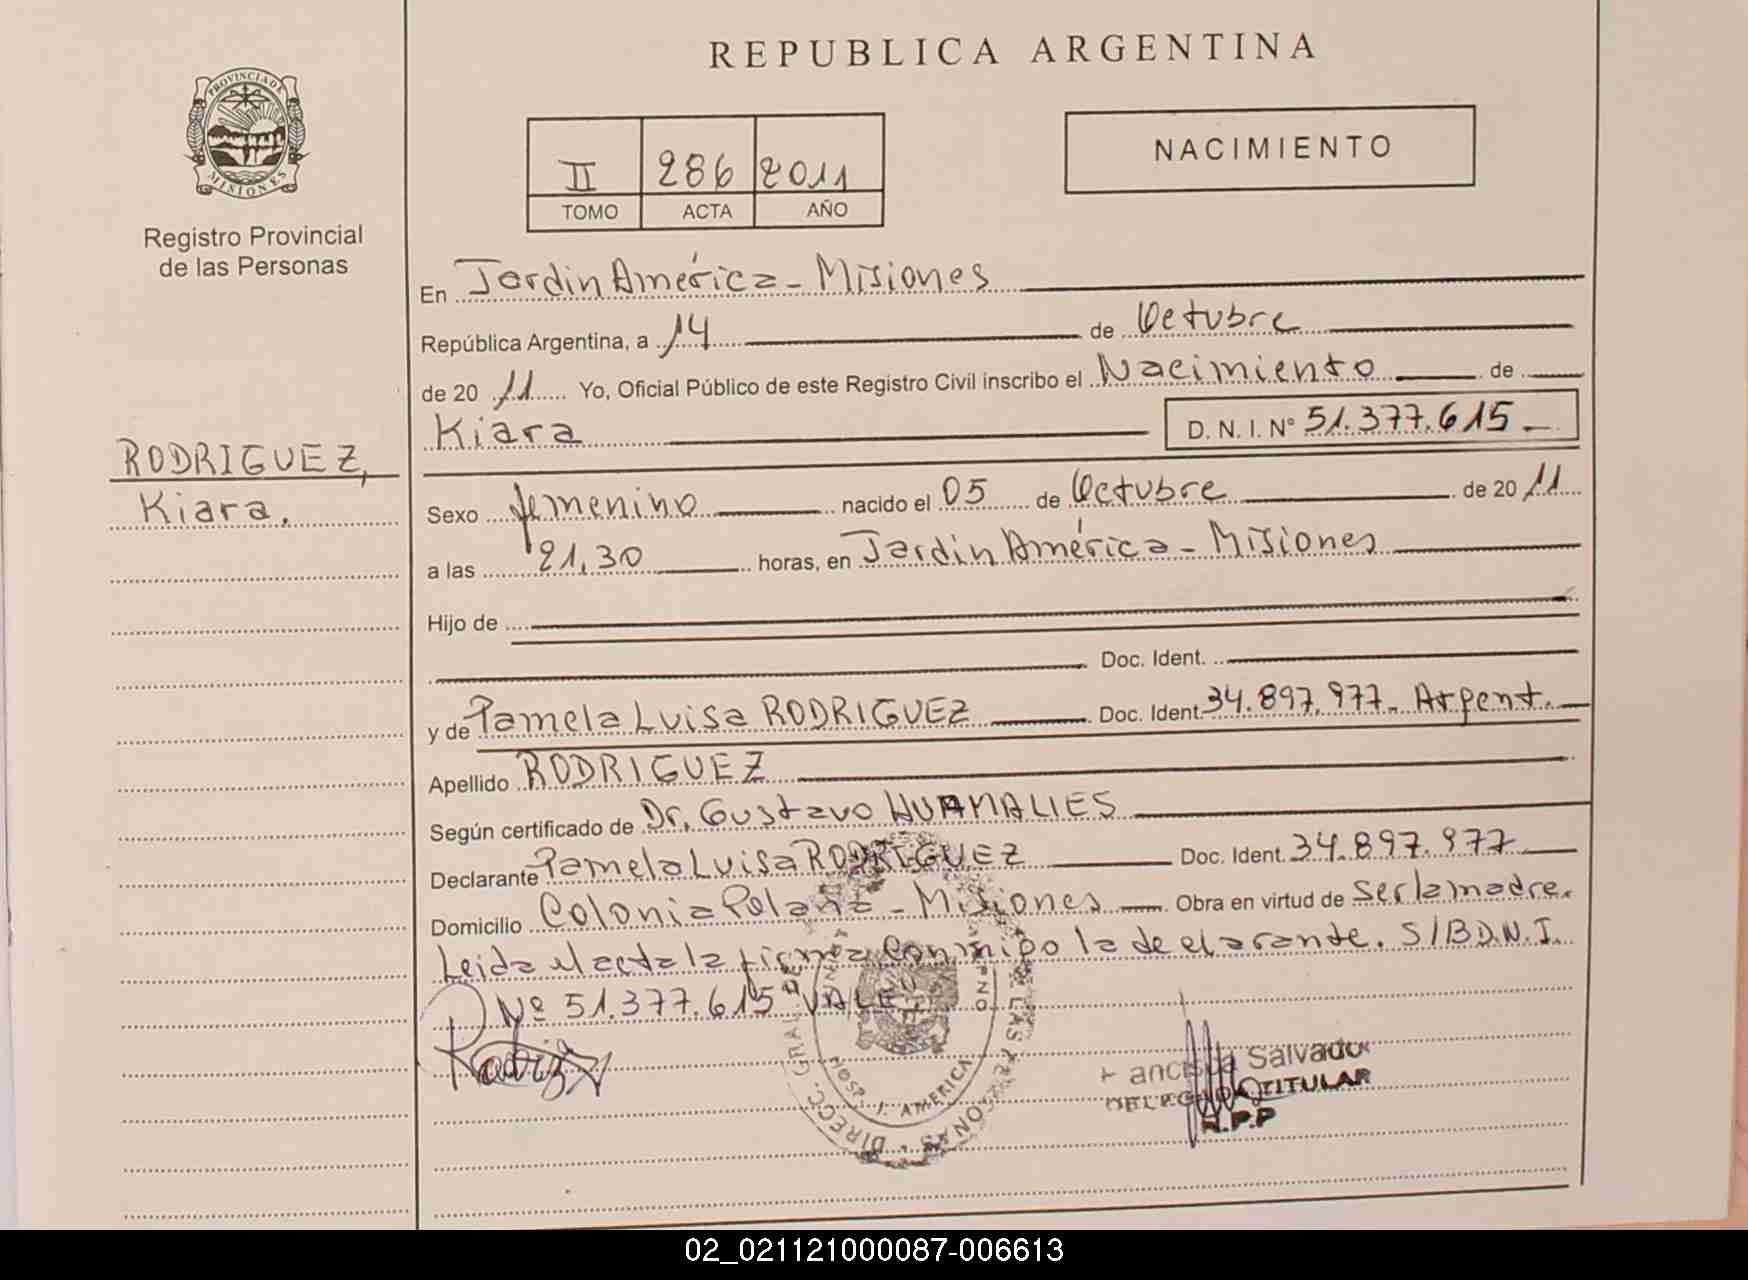 REPUBLICA ARGENTINA
PROVINCIA DE
MISIONES
Registro Provincial
de las Personas
NACIMIENTO
II 286 2011
TOMO ACTA AÑO
En Jardin América - Misiones
República Argentina, a 14 de Octubre
de 20 11 Yo, Oficial Público de este Registro Civil inscribo el Nacimiento de
Kiara D. N. I. Nº 51.377.615 -
RODRIGUEZ,
Kiara.
Sexo femenino nacido el 05 de Octubre de 20 11
a las 21,30 horas, en Jardin América - Misiones
Hijo de
Doc. Ident.
y de Pamela Luisa RODRIGUEZ Doc. Ident. 34.897.977 - Argent.
Apellido RODRIGUEZ
Según certificado de Dr. Gustavo HUAMALIES
Declarante Pamela Luisa RODRIGUEZ Doc. Ident. 34.897.977
Domicilio Colonia Polana - Misiones Obra en virtud de ser la madre.
Leida el acta la firma conmigo la declarante. S/B D.N.I.
Nº 51.377.615 VALE
Rodriguez
DIRECC. GRAL. DE LAS PERSONAS
HOSP. J. AMERICA
Salvador
DELEGADA TITULAR
R.P.P
02_021121000087-006613